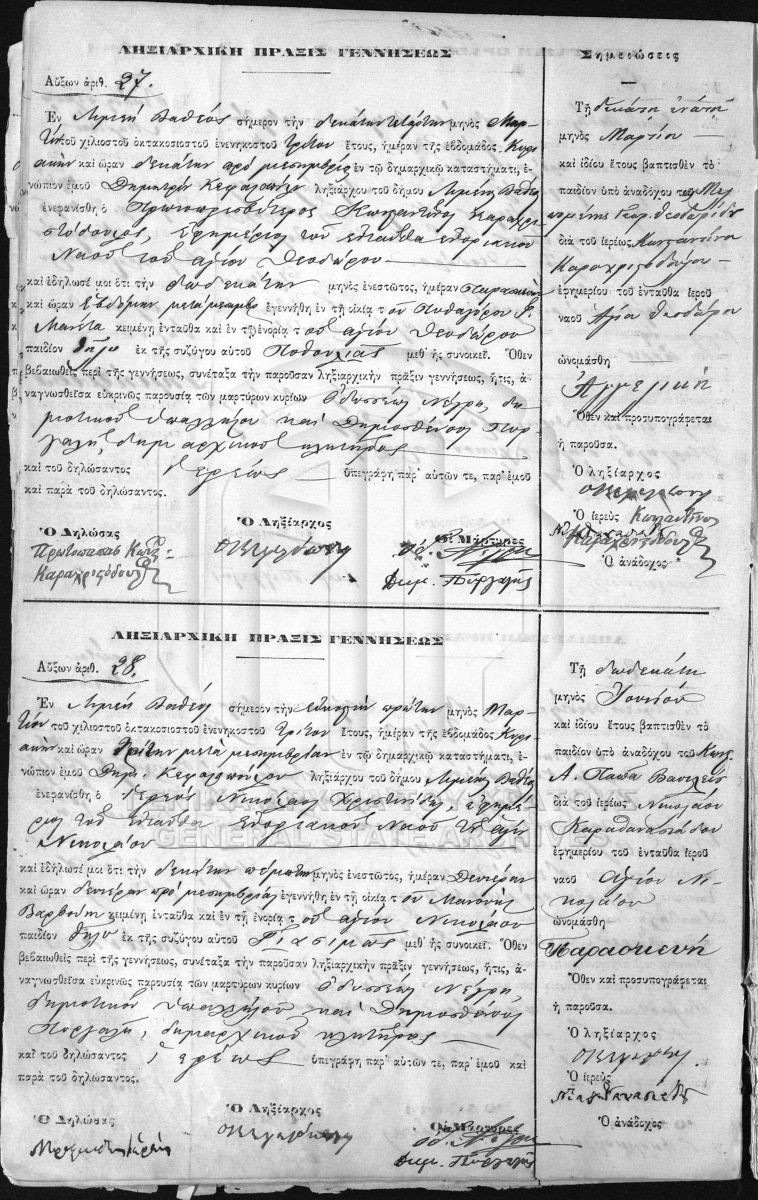 ΛΗΞΙΑΡΧΙΚΗ ΠΡΑΞΙΣ ΓΕΝΝΗΣΕΩΣ
Αὔξων ἀριθ. 27.
Ἐν Λιμένι Βαθέος σήμερον τὴν δεκάτην τετάρτην μηνὸς Μαρ-
τίου τοῦ χιλιοστοῦ ὀκτακοσιοστοῦ ἐνενηκοστοῦ τρίτου ἔτους, ἡμέραν τῆς ἑβδομάδος Κυρι
ακὴν καὶ ὥραν δεκάτην πρὸ μεσημβρίας ἐν τῷ δημαρχικῷ καταστήματι, ἐ-
νώπιον ἐμοῦ Δημητρίου Κεφαλοπούλου ληξιάρχου τοῦ δήμου Λιμένος Βαθέος
ἐνεφανίσθη ὁ Πρωτοπρεσβύτερος Κωνσταντῖνος Καραχρι
στόδουλος, ἐφημέριος τοῦ ἐνταῦθα ἐνοριακοῦ
Ναοῦ τοῦ ἁγίου Θεοδώρου
καὶ ἐδήλωσέ μοι ὅτι τὴν δωδεκάτην μηνὸς ἐνεστῶτος, ἡμέραν Παρασκευὴν
καὶ ὥραν ἑβδόμην μετὰ μεσημβρ. ἐγεννήθη ἐν τῇ οἰκίᾳ τοῦ Πυθαγόρου Γ.
Μανία κειμένῃ ἐνταῦθα καὶ ἐν τῇ ἐνορίᾳ τοῦ ἁγίου Θεοδώρου
παιδίον θῆλυ ἐκ τῆς συζύγου αὐτοῦ μεθ' ἧς συνοικεῖ. Ὅθεν
βεβαιωθεὶς περὶ τῆς γεννήσεως, συνέταξα τὴν παροῦσαν ληξιαρχικὴν πρᾶξιν γεννήσεως, ἥτις, ἀ-
ναγνωσθεῖσα εὐκρινῶς παρουσίᾳ τῶν μαρτύρων κυρίων Ὀδυσσέως Νέγρη, δη
μοτικοῦ ὑπαλλήλου καὶ Δημοσθένους Πυρ
γαλῆ, δημαρχικοῦ κλητῆρος
καὶ τοῦ δηλώσαντος ἱερέως ὑπεγράφη παρ' αὐτῶν τε, παρ' ἐμοῦ
καὶ παρὰ τοῦ δηλώσαντος.
Ὁ Δηλώσας
Πρωτοπαπᾶς Κωνστ
Καραχριστόδουλος
Ὁ Ληξίαρχος
Οἱ Μάρτυρες
Ὀδ. Νέγρης
Δημ. Πυργαλῆς
Σημειώσεις
Τῇ δεκάτῃ ἐνάτῃ
μηνὸς Μαρτίου
καὶ ἰδίου ἔτους βαπτισθὲν τὸ
παιδίον ὑπὸ ἀναδόχου τῆς Μελ
πομένης Γεωρ. Θεοδωρίδου
διὰ τοῦ ἱερέως Κωνσταντίνου
Καραχριστοδούλου
ἐφημερίου τοῦ ἐνταῦθα ἱεροῦ
ναοῦ Ἁγίου Θεοδώρου
ὠνομάσθη
Ἀγγελική
Ὅθεν καὶ προσυπογράφεται
ἡ παροῦσα.
Ὁ ληξίαρχος
Ὁ ἱερεὺς Κωνσταντῖνος
Καραχριστόδουλος
Ὁ ἀνάδοχος
ΛΗΞΙΑΡΧΙΚΗ ΠΡΑΞΙΣ ΓΕΝΝΗΣΕΩΣ
Αὔξων ἀριθ. 28.
Ἐν Λιμένι Βαθέος σήμερον τὴν εἰκοστὴν πρώτην μηνὸς Μαρ-
τίου τοῦ χιλιοστοῦ ὀκτακοσιοστοῦ ἐνενηκοστοῦ τρίτου ἔτους, ἡμέραν τῆς ἑβδομάδος Κυρι
ακὴν καὶ ὥραν τρίτην μετὰ μεσημβρίαν ἐν τῷ δημαρχικῷ καταστήματι, ἐ-
νώπιον ἐμοῦ Δημ. Κεφαλοπούλου ληξιάρχου τοῦ δήμου Λιμένος Βαθέος
ἐνεφανίσθη ὁ ἱερεὺς Νικόλαος ἐφημέ
ριος τοῦ ἐνταῦθα ἐνοριακοῦ Ναοῦ τοῦ ἁγίου
Νικολάου
καὶ ἐδήλωσέ μοι ὅτι τὴν δεκάτην πέμπτην μηνὸς ἐνεστῶτος, ἡμέραν Δευτέραν
καὶ ὥραν δευτέραν πρὸ μεσημβρίας ἐγεννήθη ἐν τῇ οἰκίᾳ τοῦ Μανουὴλ
Βαρβούνη κειμένῃ ἐνταῦθα καὶ ἐν τῇ ἐνορίᾳ τοῦ ἁγίου Νικολάου
παιδίον θῆλυ ἐκ τῆς συζύγου αὐτοῦ μεθ' ἧς συνοικεῖ. Ὅθεν
βεβαιωθεὶς περὶ τῆς γεννήσεως, συνέταξα τὴν παροῦσαν ληξιαρχικὴν πρᾶξιν γεννήσεως, ἥτις, ἀ-
ναγνωσθεῖσα εὐκρινῶς παρουσίᾳ τῶν μαρτύρων κυρίων Ὀδυσσέως Νέγρη,
δημοτικοῦ ὑπαλλήλου καὶ Δημοσθένους
Πυργαλῆ, δημαρχικοῦ κλητῆρος
καὶ τοῦ δηλώσαντος ἱερέως ὑπεγράφη παρ' αὐτῶν τε, παρ' ἐμοῦ καὶ
παρὰ τοῦ δηλώσαντος.
Ὁ Δηλώσας
Ὁ Ληξίαρχος
Οἱ Μάρτυρες
Ὀδ. Νέγρης
Δημ. Πυργαλῆς
Τῇ δωδεκάτῃ
μηνὸς Ἰουνίου
καὶ ἰδίου ἔτους βαπτισθὲν τὸ
παιδίον ὑπὸ ἀναδόχου τοῦ Κωνστ.
Α. Παπᾶ Βασιλείου
διὰ τοῦ ἱερέως Νικολάου
Καραθανασιάδου
ἐφημερίου τοῦ ἐνταῦθα ἱεροῦ
ναοῦ Ἁγίου Νι-
κολάου
ὠνομάσθη
Παρασκευή
Ὅθεν καὶ προσυπογράφεται
ἡ παροῦσα.
Ὁ ληξίαρχος
Ὁ ἱερεὺς
Ὁ ἀνάδοχος
GENERAL STATE ARCHIVES